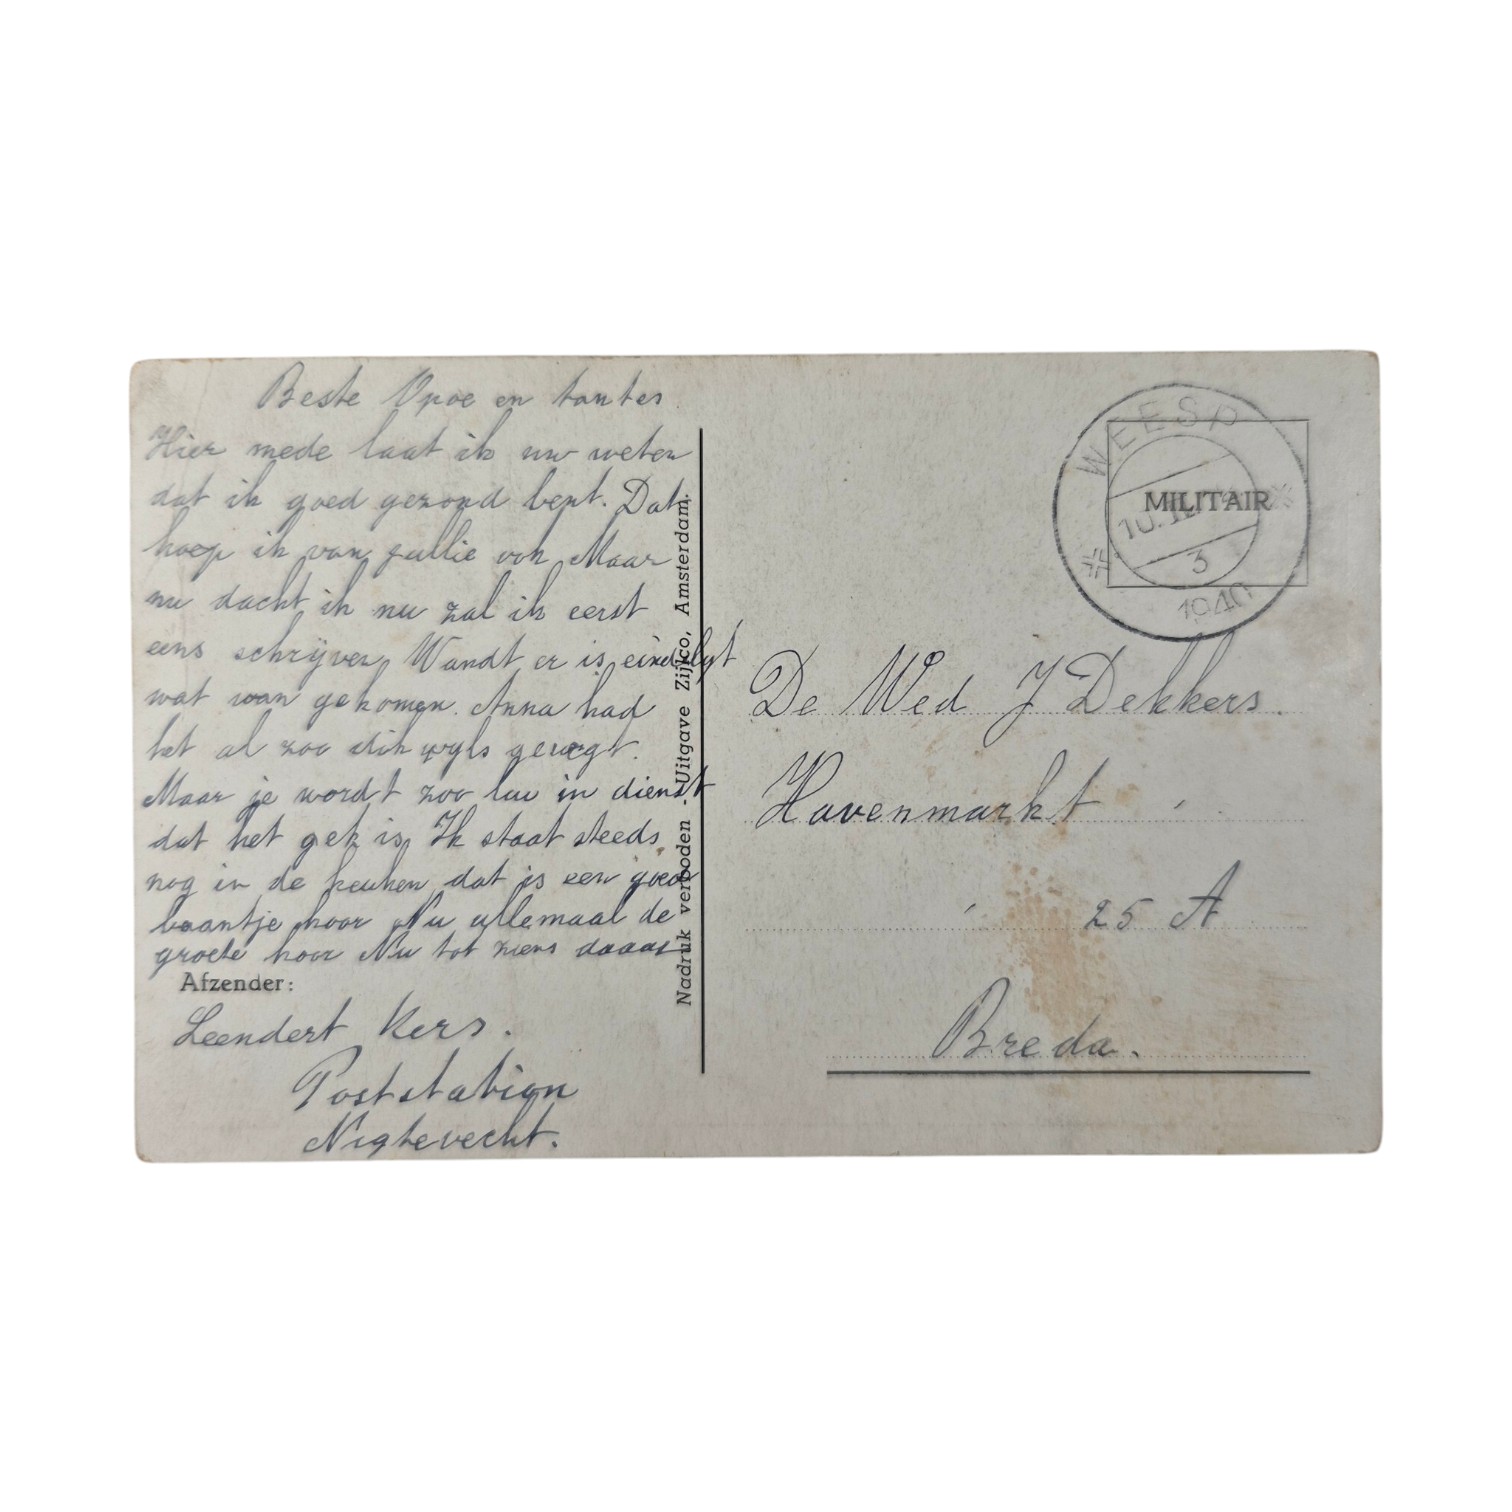 Beste Opoe en tantes
Hier mede laat ik uw weten
dat ik goed gezond bent. Dat
hoop ik van jullie ook Maar
nu dacht ik nu zal ik eerst
eens schrijven Wandt er is eindelyt
wat van gekomen. Anna had
het al zoo dik wyls gevregt.
Maar je wordt zoo lui in dienst
dat het gek is, Ik staat steeds
nog in de keuken dat is een goed
baantje hoor Nu allemaal de
groete hoor Nu tot ziens daaag
Afzender:
Leendert Kers.
Poststation
Nigtevecht.
Nadruk verboden. Uitgave Zijlco, Amsterdam.
WEESP
MILITAIR
3
1940
De Wed J Dekkers.
Havenmarkt
25 A
Breda.